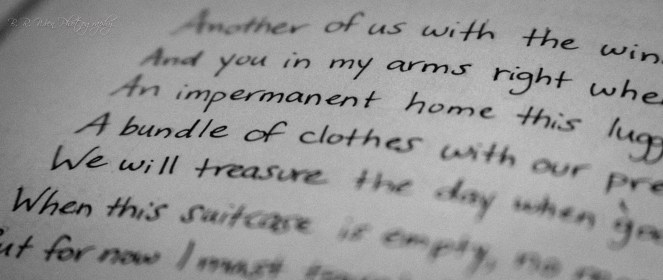 Another of us with the win
And you in my arms right whe
An impermanent home this lugg
A bundle of clothes with our pre
We will treasure the day when you
When this suitcase is empty, no
ut for now I must